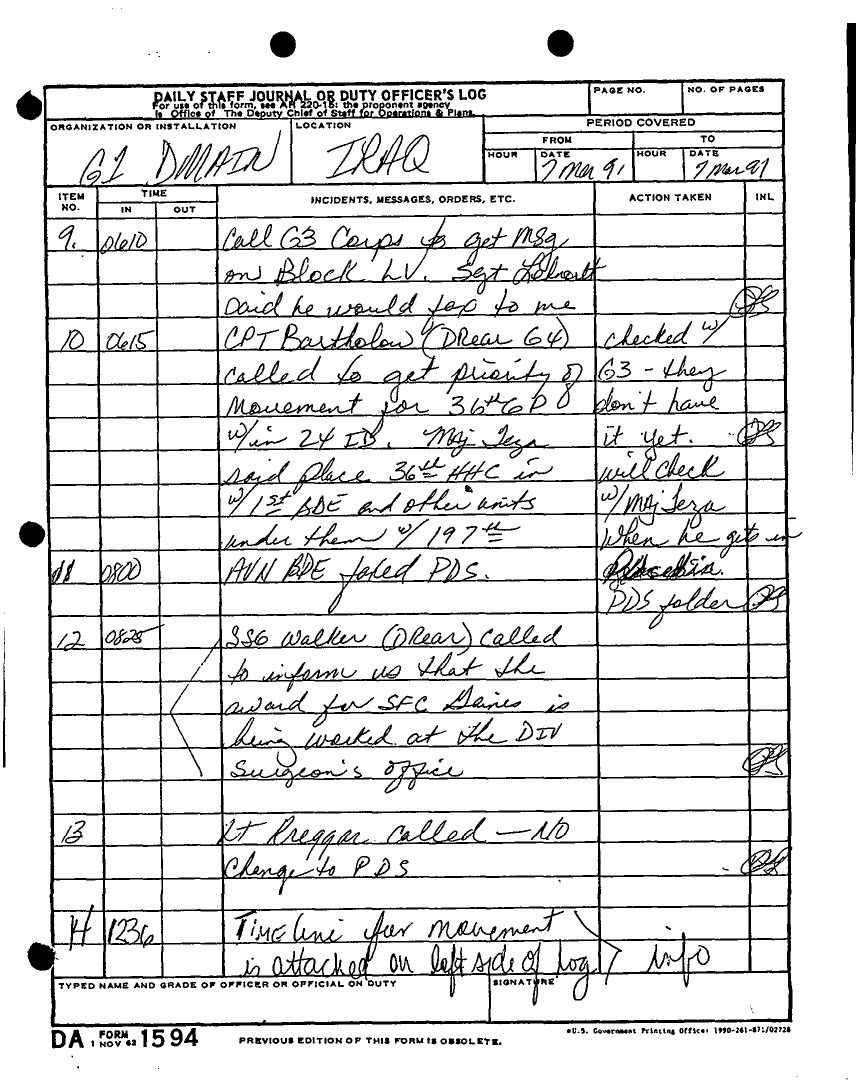 DAILY STAFF JOURNAL OR DUTY OFFICER'S LOG
For use of this form, see AR 220-15: the proponent agency
is Office of The Deputy Chief of Staff for Operations & Plans.
PAGE NO.
NO. OF PAGES
ORGANIZATION OR INSTALLATION
G1 DMAIN
LOCATION
IRAQ
PERIOD COVERED
FROM
TO
HOUR
DATE
7 Mar 91
HOUR
DATE
7 Mar 91
ITEM NO.
TIME
IN
OUT
INCIDENTS, MESSAGES, ORDERS, ETC.
ACTION TAKEN
INL
9. 0610 Call G3 Corps to get msg
on Block LV. Sgt
said he would fax to me
10 0615 CPT Bartholow (DRear G4) checked w/
called to get priority of G3 - they
movement for 36th GPD don't have
w/in 24 ID. Maj Teza it yet.
said place 36th HHC in will check
w/ 1st BDE and other units w/ MAJ Teza
under them w/ 197th when he gets in
11 0800 AVN BDE faxed PDS.
PDS folder
12 0825 SSG Walker (DRear) called
to inform us that the
award for SFC Gaines is
being worked at the DIV
Surgeon's office
13 Lt Preggar called — NO
change to PDS
14 1236 Time line for movement
is attached on left side of log > info
TYPED NAME AND GRADE OF OFFICER OR OFFICIAL ON DUTY
SIGNATURE
DA FORM 1 NOV 62 1594
PREVIOUS EDITION OF THIS FORM IS OBSOLETE.
*U.S. Government Printing Office: 1990-261-871/02728